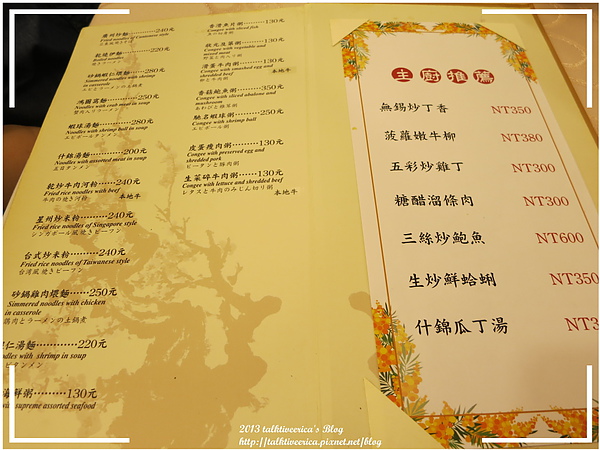 廣州炒麵………240元
Fried noodles of Cantonese style
乾燒伊麵………220元
Boiled noodles
砂鍋蝦仁煨麵……280元
Simmered noodles with shrimp
in casserole
鴻圖窩麵………250元
Noodles with crab meat in soup
蝦球湯麵………280元
Noodles with shrimp ball in soup
エビタンメン
什錦湯麵………200元
Noodles with assorted meat in soup
五目タンメン
乾炒牛肉河粉……240元
Fried rice noodles with beef
牛肉の焼き河粉 本地牛
星州炒米粉………240元
Fried rice noodles of Singapore style
シンガポール風焼きビーフン
台式炒米粉………240元
Fried rice noodles of Taiwanese style
台湾風焼きビーフン
砂鍋雞肉煨麵……250元
Simmered noodles with chicken
in casserole
鶏肉とラーメンの土鍋煮
仁湯麵…………220元
oodles with shrimp in soup
ビタンメン
海鮮粥………130元
with supreme assorted seafood
香滑魚片粥………130元
Congee with sliced fish
狀元及第粥………130元
Congee with vegetable and
mixed meat
滑蛋牛肉粥………130元
Congee with smashed egg and
shredded beef
卵と牛肉粥 本地牛
香菇鮑魚粥………350元
Congee with sliced abalone and
mushroom
あわびと椎茸粥
馳名蝦球粥………250元
Congee with shrimp ball
エビボール粥
皮蛋瘦肉粥………130元
Congee with preserved egg and
shredded pork
ピータンと豚肉粥
生菜碎牛肉粥……130元
Congee with lettuce and shredded beef
レタスと牛肉のみじん切り粥 本地牛
主廚推薦
無錫炒丁香 NT350
菠蘿嫩牛柳 NT380
五彩炒雞丁 NT300
糖醋溜條肉 NT300
三絲炒鮑魚 NT600
生炒鮮蛤蜊 NT350
什錦瓜丁湯 NT3
2013 talktiveerica's Blog
http://talktiveerica.pixnet.net/blog